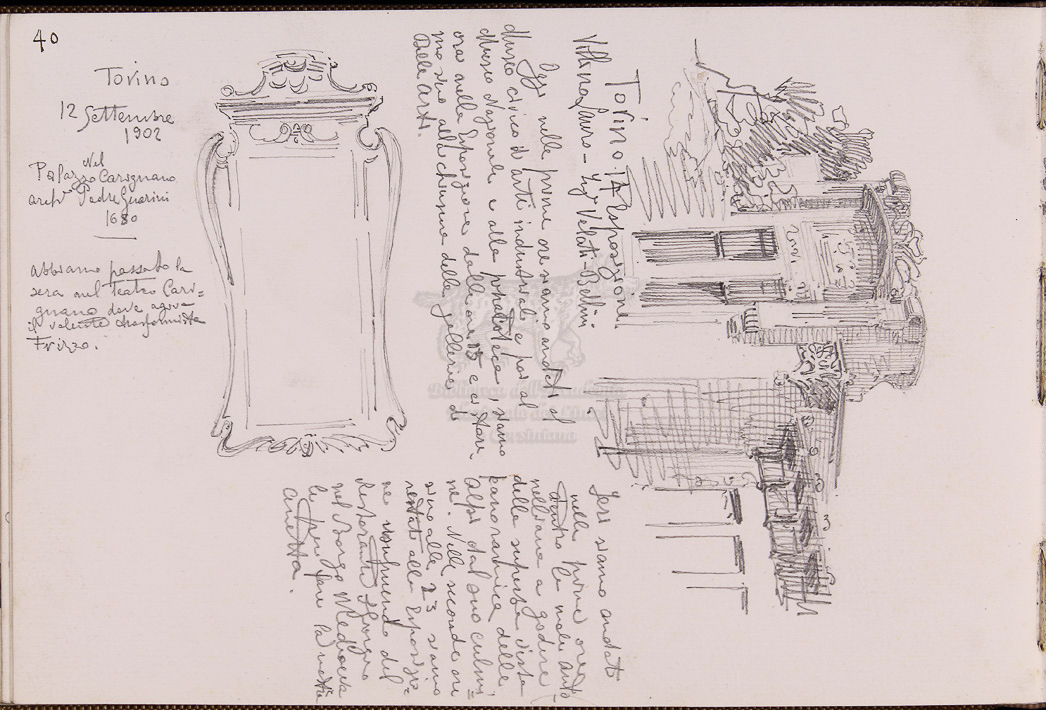 40
Torino
12 Settembre
1902
Nel
Palazzo Carignano
archº Padre Guarini
1680
abbiamo passato la
sera nel teatro Cari=
gnano dove agiva
il valente trasformista
Frizzo.
Torino: la Esposizione.
Villino Lauro - Ing. Velati-Bellini
Oggi nelle prime ore siamo andati al
Museo civico di arti industriali e poi al
Museo Nazionale e alla pinacoteca, siamo
ora nella Esposizione dalle ore 13 e ci stare,
mo sino alla chiusura delle gallerie di
Belle arti.
Jeri siamo andati
nelle prime ore
dentro la mole anto
nelliana a godere
della superba vista
panoramica delle
Alpi dal suo culmi,
ne. Nelle seconde ore
sino alle 23 siamo
restati alla Esposizio=
ne
del
Restorante
nel Borgo Medioeva
le
per fare la nostra
cenetta.
Biblioteca dell'Accademia